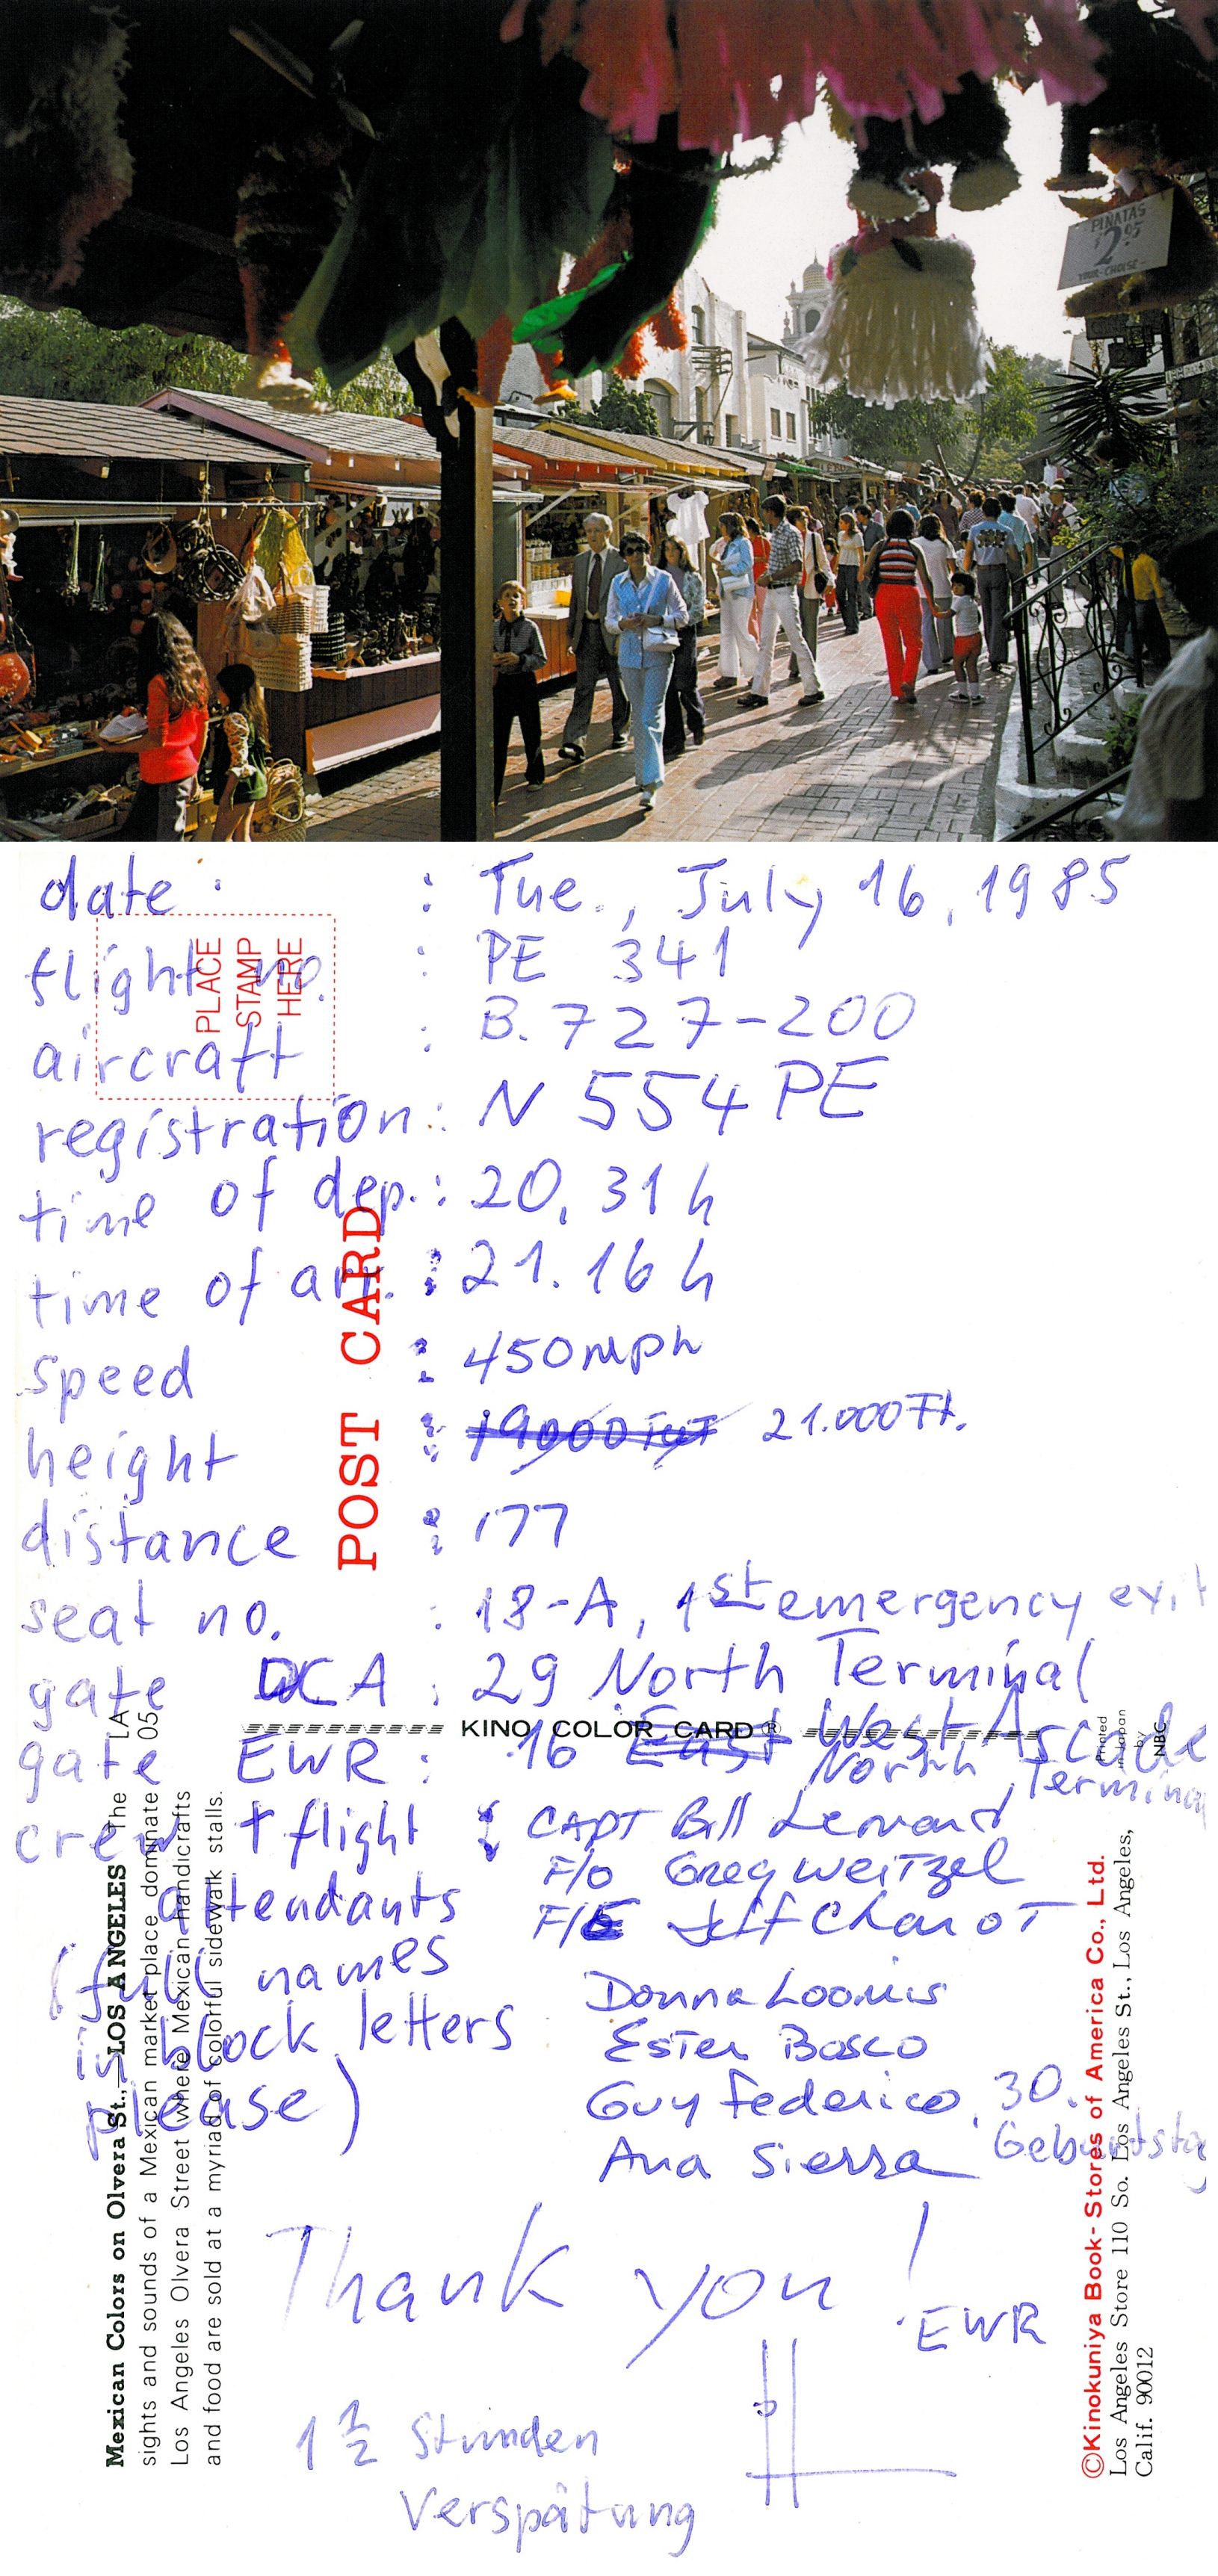 PIÑATAS
$2.95
YOUR-CHOISE
date : : Tue., July 16, 1985
flight no. : PE 341
aircraft : B.727-200
registration : N 554 PE
time of dep. : 20.31 h
time of arr. : 21.16 h
speed : 450 mph
height : 19000 21.000 Ft.
distance : 177
seat no. : 18-A, 1st emergency exit
gate DCA : 29 North Terminal
gate EWR : 16 East West Arcade
North Terminal
crew + flight : CAPT Bill Leonard
F/O Greg Weitzel
attendants F/E Jeff Charot
(full names Donna Loomis
in block letters Ester Bosco
please) Guy Federico, 30.
Ana Sierra Geburtstag
Thank you!
EWR
1 1/2 Stunden
Verspätung
PLACE
STAMP
HERE
POST CARD
KINO COLOR CARD®
Printed
in Japan
by
NBC
LA
05
Mexican Colors on Olvera St., LOS ANGELES The
sights and sounds of a Mexican market place dominate
Los Angeles Olvera Street where Mexican handicrafts
and food are sold at a myriad of colorful sidewalk stalls.
©Kinokuniya Book-Stores of America Co., Ltd.
Los Angeles Store 110 So. Los Angeles St., Los Angeles,
Calif. 90012